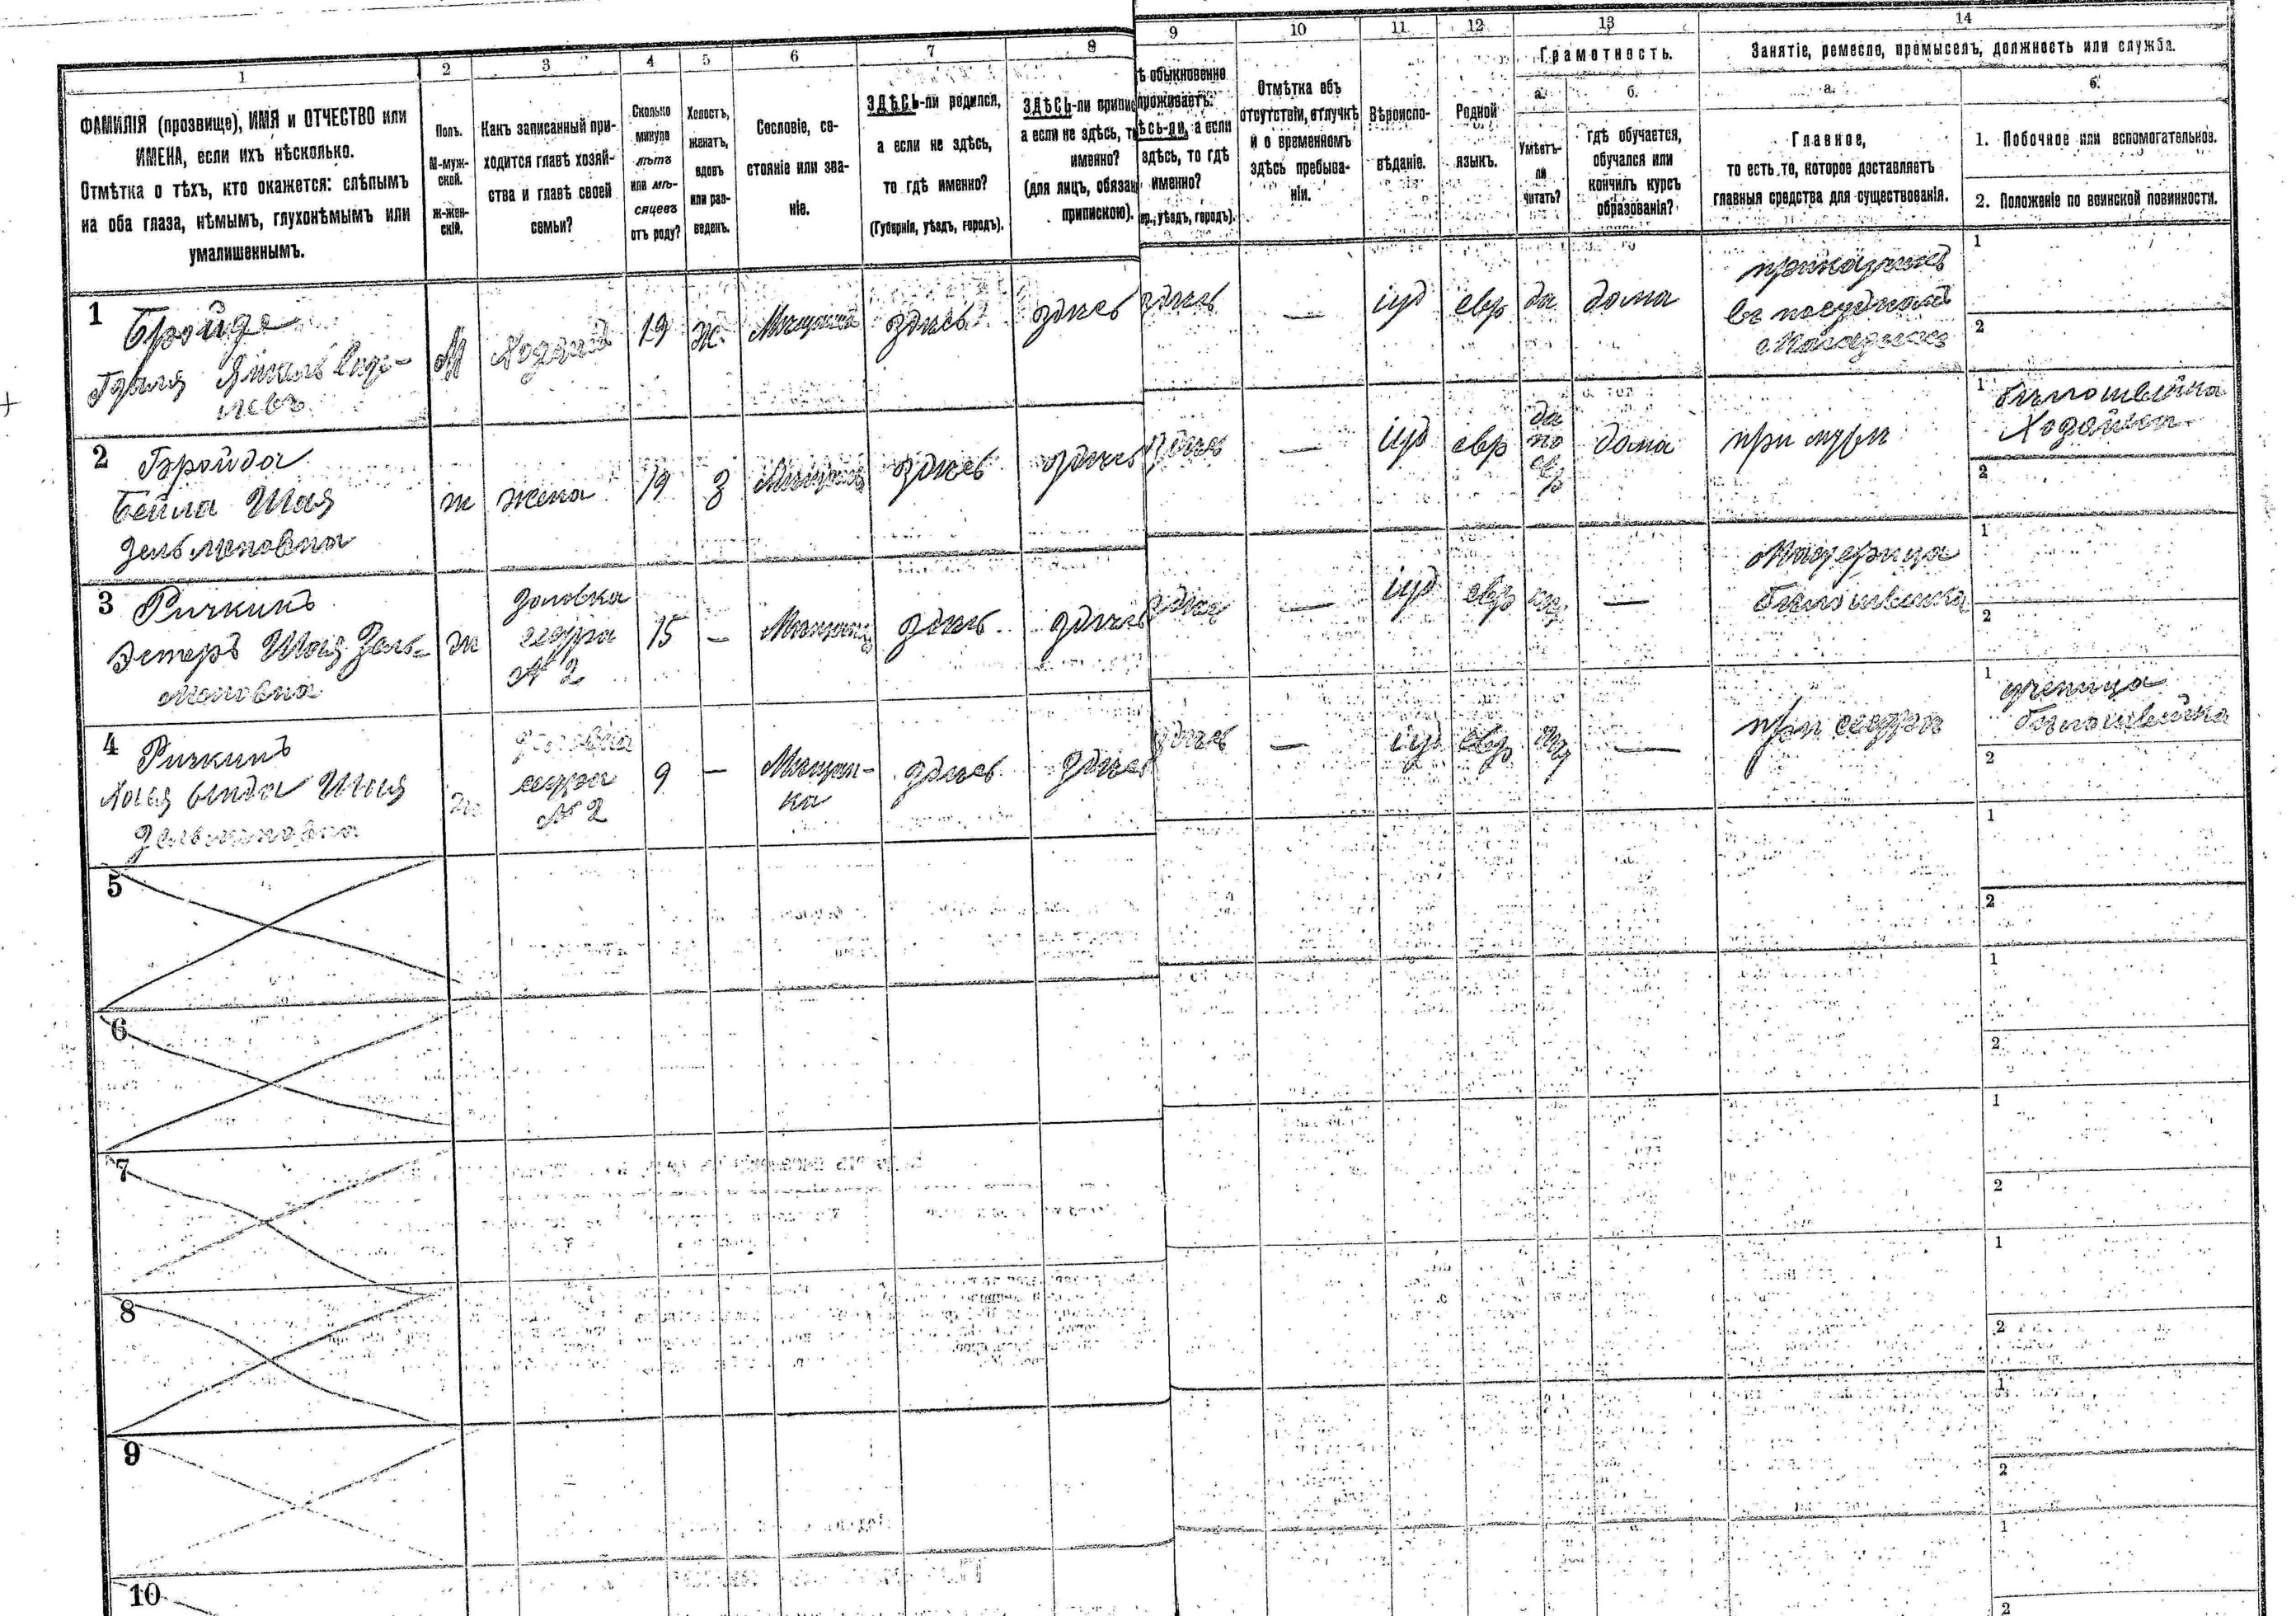 1 2 3 4 5 6 7 8 9 10 11 12 13 14
ФАМИЛІЯ (прозвище), ИМЯ и ОТЧЕСТВО или
ИМЕНА, если ихъ нѣсколько.
Отмѣтка о тѣхъ, кто окажется: слѣпымъ
на оба глаза, нѣмымъ, глухонѣмымъ или
умалишеннымъ.
Полъ.
М-муж-
ской.
Ж-жен-
скій.
Какъ записанный при-
ходится главѣ хозяй-
ства и главѣ своей
семьи?
Сколько
минуло
лѣтъ
или мѣ-
сяцевъ
отъ роду?
Холостъ,
женатъ,
вдовъ
или раз-
веденъ.
Сословіе, со-
стояніе или зва-
ніе.
ЗДѢСЬ-ли родился,
а если не здѣсь,
то гдѣ именно?
(Губернія, уѣздъ, городъ).
ЗДѢСЬ-ли припис
а если не здѣсь, т
именно?
(для лицъ, обязан
припискою).
ѣ обыкновенно
проживаетъ:
ѣсь-ли, а если
здѣсь, то гдѣ
именно?
ер., уѣздъ, городъ).
Отмѣтка объ
отсутствіи, отлучкѣ
и о временномъ
здѣсь пребыва-
ніи.
Вѣроиспо-
вѣданіе.
Родной
языкъ.
Грамотность.
а.
Умѣетъ-
ли
читать?
б.
гдѣ обучается,
обучался или
кончилъ курсъ
образованія?
Занятіе, ремесло, промыселъ, должность или служба.
а.
Главное,
то есть то, которое доставляетъ
главныя средства для существованія.
б.
1. Побочное или вспомогательное.
2. Положеніе по воинской повинности.
1 Бройде
М
19
ж.
здѣсь
здѣсь
здѣсь
—
іуд
евр
да
дома
1
2
2 Бройда
Бейла Шая
Зельмановна
ж
жена
19
з
здѣсь
здѣсь
здѣсь
—
іуд
евр
да
по
евр
дома
при мужѣ
1 бѣлошвейка
Хозяйка
2
3 Ричкинъ
Эстеръ Шая Зель-
мановна
ж
золовка
сестра
№ 2
15
—
здѣсь
здѣсь
здѣсь
—
іуд
евр
—
Мастерица
бѣлошвейка
1
2
4 Ричкинъ
Шая
Зельмановна
ж
сестра
№ 2
9
—
Мѣщан-
ка
здѣсь
здѣсь
здѣсь
—
іуд
евр
—
при сестрѣ
1 ученица
бѣлошвейка
2
5
1
2
6
1
2
7
1
2
8
1
2
9
1
2
10
1
2